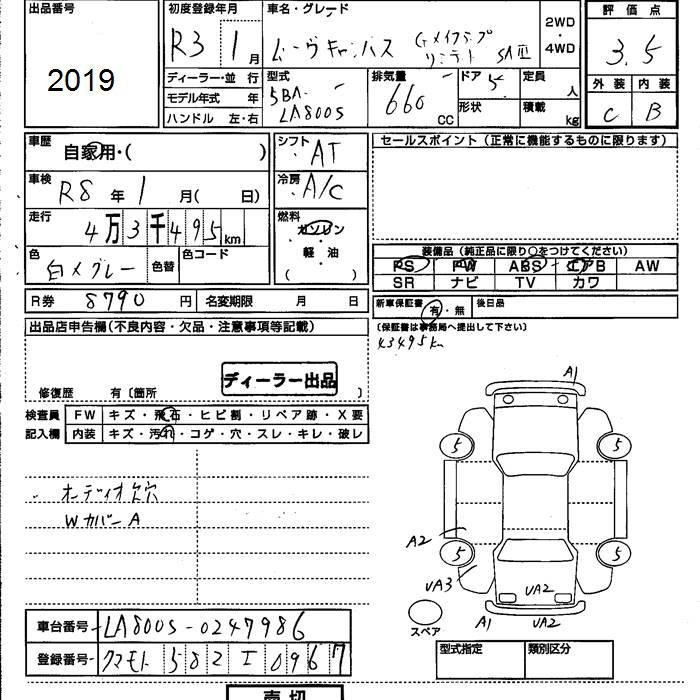 出品番号
2019
初度登録年月
R3 1月
車名・グレード
ムーヴキャンバス Gメイクアップ
リミテッド SAⅢ
2WD
・
4WD
評価点
3.5
外装 内装
C B
ディーラー・並 行
モデル年式 年
ハンドル 左・右
型式
5BA-
LA800S
排気量
660 CC
ドア 5
形状
定員 人
積載 kg
車歴
自家用・( )
シフト
AT
セールスポイント (正常に機能するものに限ります)
車検
R8年1月( 日)
冷房
A/C
走行
4万3千495km
燃料
ガソリン
軽・油
( )
色
白×グレー
色替
色コード
装備品 (純正品に限り○をつけてください)
PS PW ABS エアB AW
SR ナビ TV カワ
R券 8790円
名変期限 月 日
新車保証書 有・無
後日品
(保証書は事務局へ提出して下さい)
43495km
出品店申告欄(不良内容・欠品・注意事項等記載)
ディーラー出品
修復歴 有〔箇所 〕
検査員
記入欄
FW キズ・飛石・ヒビ割・リペア跡・X要
内装 キズ・汚れ・コゲ・穴・スレ・キレ・破レ
オーディオ欠穴
WカバーA
A1
5 5
A2
5 5
UA3
UA2
A1 UA2
スペア
車台番号 LA800S-0247986
登録番号 クマモト 582 エ 0967
型式指定 類別区分
売切